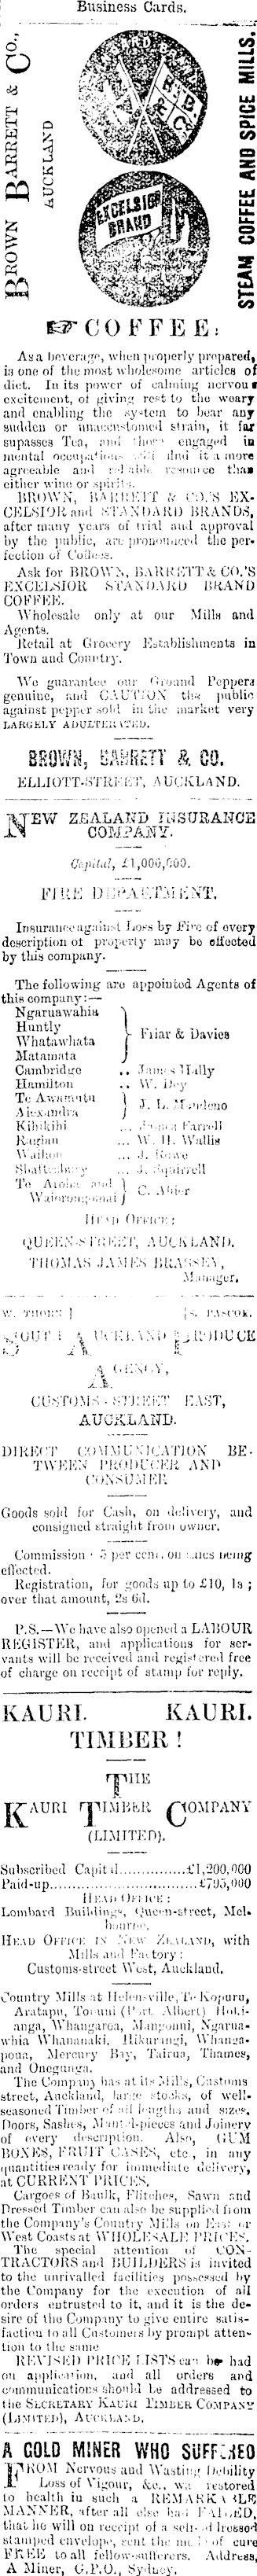 Business Cards.
BROWN BARRETT & CO.,
AUCKLAND
STANDARD BRAND
EXCELSIOR
BRAND
STEAM COFFEE AND SPICE MILLS.
☞ COFFEE:
As a beverage, when properly prepared,
is one of the most wholesome articles of
diet. In its power of calming nervous
excitement, of giving rest to the weary
and enabling the system to bear any
sudden or unaccustomed strain, it far
supasses Tea, and those engaged in
mental occupations will find it a more
agreeable and reliable resource than
either wine or spirits.
BROWN, BARRETT & CO.'S EX-
CELSIOR and STANDARD BRANDS,
after many years of trial and approval
by the public, are pronounced the per-
fection of Coffees.
Ask for BROWN, BARRETT & CO.'S
EXCELSIOR STANDARD BRAND
COFFEE.
Wholesale only at our Mills and
Agents.
Retail at Grocery Establishments in
Town and Country.
We guarantee our Ground Peppers
genuine, and CAUTION the public
against pepper sold in the market very
LARGELY ADULTERATED.
BROWN, BARRETT & CO.
ELLIOTT-STREET, AUCKLAND.
NEW ZEALAND INSURANCE
COMPANY.
Capital, £1,000,000.
FIRE DEPARTMENT.
Insurance against Loss by Fire of every
description of property may be effected
by this company.
The following are appointed Agents of
this company:—
Ngaruawahia
Huntly
Whatawhata
Matamata
Friar & Davies
Cambridge .. James Hally
Hamilton .. W. Dey
Te Awamutu
Alexandra
J. L. Mandeno
Kihikihi ... Farrell
Raglan ... W. H. Wallis
Waihou ... J. Rowe
Shaftesbury ... J. Squirrell
Te Aroha and
Waiorongomai
C. Ahier
HEAD OFFICE:
QUEEN-STREET, AUCKLAND.
THOMAS JAMES BRASSEY,
Manager.
W. THORN] [S. PASCOE.
SOUTH AUCKLAND PRODUCE
AGENCY,
CUSTOMS-STREET EAST,
AUCKLAND.
DIRECT COMMUNICATION BE-
TWEEN PRODUCER AND
CONSUMER
Goods sold for Cash, on delivery, and
consigned straight from owner.
Commission 5 per cent. on sales being
effected.
Registration, for goods up to £10, 1s;
over that amount, 2s 6d.
P.S.—We have also opened a LABOUR
REGISTER, and applications for ser-
vants will be received and registered free
of charge on receipt of stamp for reply.
KAURI. KAURI.
TIMBER!
THE
KAURI TIMBER COMPANY
(LIMITED).
Subscribed Capital..............£1,200,000
Paid-up..............................£795,000
HEAD OFFICE:
Lombard Buildings, Queen-street, Mel-
bourne,
HEAD OFFICE IN NEW ZEALAND, with
Mills and Factory:
Customs-street West, Auckland.
Country Mills at Helensville, Te Kopuru,
Aratapu, (Port Albert) Hoki-
anga, Whangaroa, Mangonui, Ngarua-
whia Whananaki, Hikurangi, Whanga-
poua, Mercury Bay, Tairua, Thames,
and Onehunga.
The Company has at its Mills, Customs
street, Auckland, large stocks, of well-
seasoned Timber of all lengths and sizes.
Doors, Sashes, Mantel-pieces and Joinery
of every description. Also, GUM
BOXES, FRUIT CASES, etc, in any
quantities ready for immediate delivery,
at CURRENT PRICES.
Cargoes of Baulk, Flitches, Sawn and
Dressed Timber can also be supplied from
the Company's Country Mills on East or
West Coasts at WHOLESALE PRICES.
The special attention of CON-
TRACTORS and BUILDERS is invited
to the unrivalled facilities possessed by
the Company for the execution of all
orders entrusted to it, and it is the de-
sire of the Company to give entire satis-
faction to all Customers by prompt atten-
tion to the same
REVISED PRICE LISTS can be had
on application, and all orders and
communications should be addressed to
the SECRETARY KAURI TIMBER COMPANY
(LIMITED), AUCKLAND.
A GOLD MINER WHO SUFFERED
FROM Nervous and Wasting Debility
Loss of Vigour, &c., was restored
to health in such a REMARKABLE
MANNER, after all else had FAILED,
that he will on receipt of a self-addressed
stamped envelope, send the mode of cure
FREE to all fellow-sufferers. Address,
A Miner, G.P.O., Sydney.